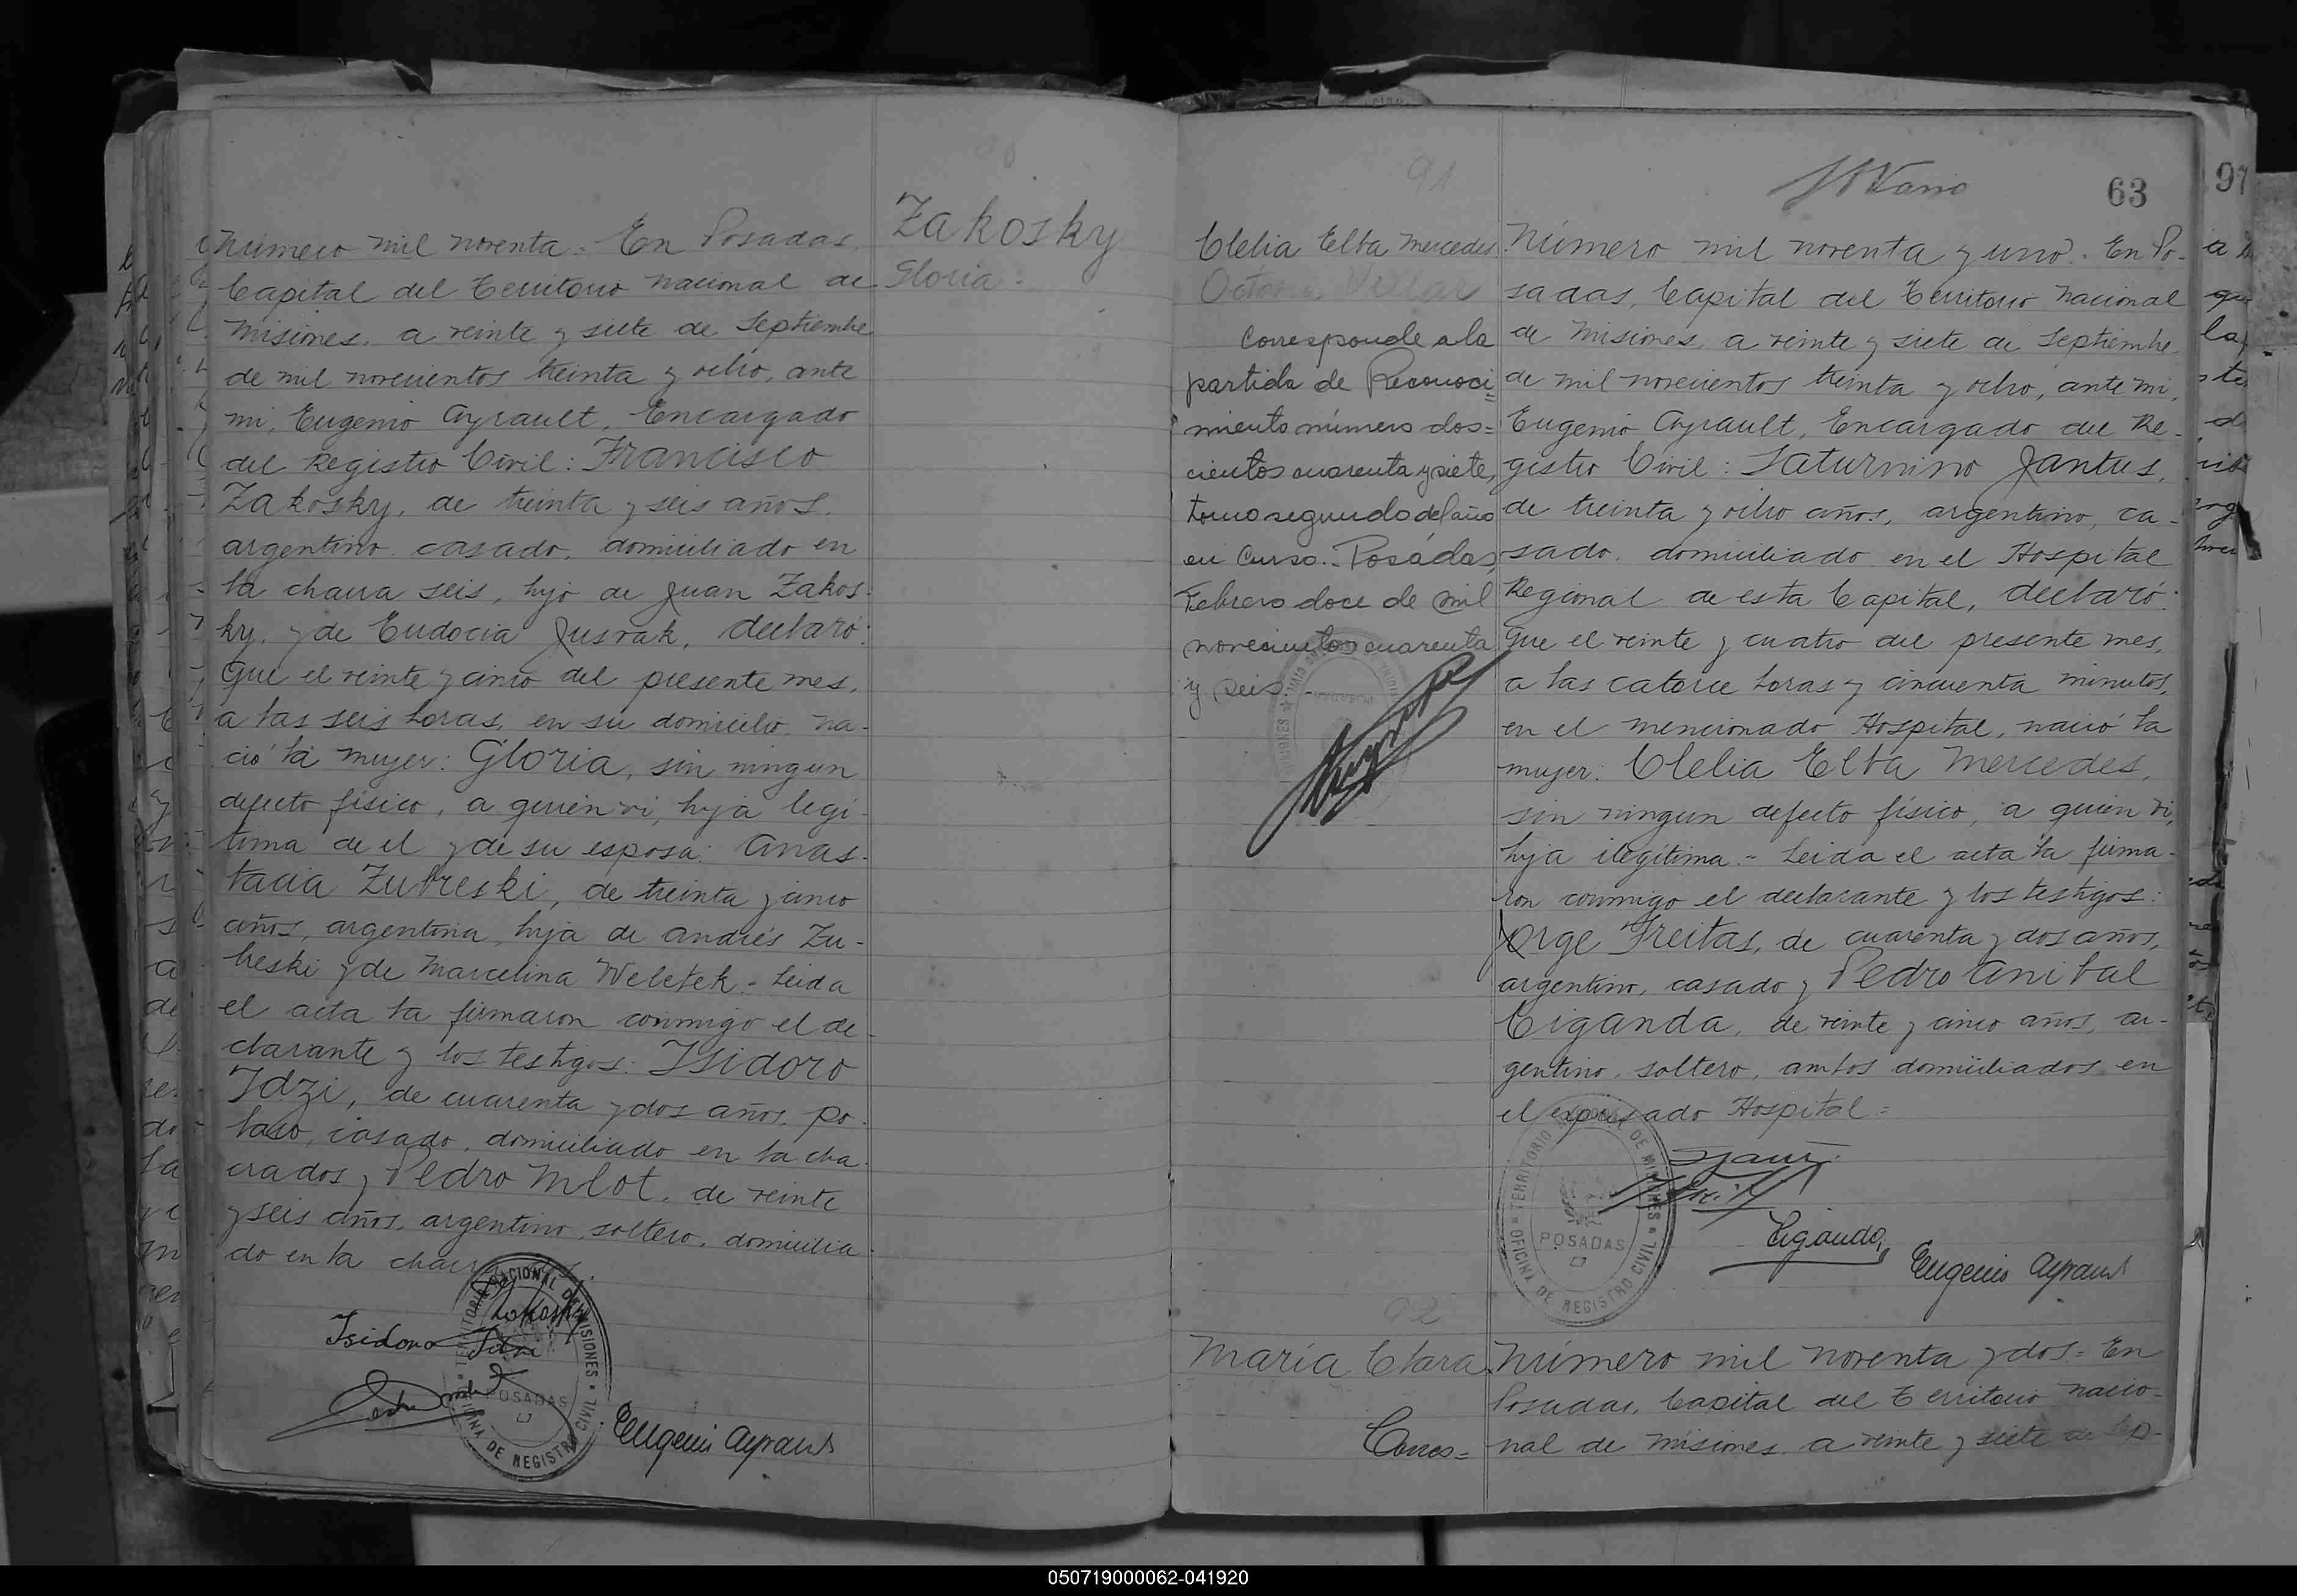 Zakosky
Gloria.
Número mil noventa.= En Posadas,
Capital del Territorio nacional de
Misiones, a veinte y siete de Septiembre
de mil novecientos treinta y ocho, ante
mi, Eugenio Ayrault, Encargado
del Registro Civil: Francisco
Zakosky, de treinta y seis años,
argentino, casado, domiciliado en
la chacra seis, hijo de Juan Zakos-
ky, y de Eudocia Jusvak, declaró:
Que el veinte y cinco del presente mes,
a las seis horas, en su domicilio, na-
ció la mujer: Gloria, sin ningun
defecto físico, a quién vi, hija legí-
tima de el y de su esposa: Anas-
tacia Zubreski, de treinta y cinco
años, argentina, hija de Andrés Zu-
breski y de Marcelina Weletek.- Leida
el acta la firmaron conmigo el de-
clarante y los testigos: Isidoro
Idzi, de cuarenta y dos años, po-
laco, casado, domiciliado en la cha-
cra dos y Pedro Mlot, de veinte
y seis años, argentino, soltero, domicilia-
do en la chacra
Zakosky
Isidoro Idzi
Pedro Mlot
Eugenio Ayrault
TERRITORIO NACIONAL DE MISIONES
POSADAS
OFICINA DE REGISTRO CIVIL
91
63
97
Clelia Elba Mercedes
Corresponde a la
partida de Reconoci=
miento número dos=
cientos cuarenta y siete,
tomo segundo del año
en Curso.- Posadas,
Febrero doce de mil
novecientos cuarenta
y seis.-
Número mil noventa y uno.- En Po-
sadas, Capital del Territorio nacional
de Misiones, a veinte y siete de Septiembre
de mil novecientos treinta y ocho, ante mi,
Eugenio Ayrault, Encargado del Re-
gistro Civil: Saturnino Jantus,
de treinta y ocho años, argentino, ca-
sado, domiciliado en el Hospital
Regional de esta Capital, declaró:
Que el veinte y cuatro del presente mes,
a las catorce horas y cincuenta minutos,
en el mencionado Hospital, nació la
mujer: Clelia Elba Mercedes,
sin ningun defecto físico, a quién vi,
hija ilegítima.- Leida el acta la firma-
ron conmigo el declarante y los testigos:
Jorge Freitas, de cuarenta y dos años,
argentino, casado y Pedro Anibal
Ciganda, de veinte y cinco años, ar-
gentino, soltero, ambos domiciliados en
el expresado Hospital=
TERRITORIO NACIONAL DE MISIONES
POSADAS
OFICINA DE REGISTRO CIVIL
Ciganda
Eugenio Ayrault
92
María Clara
Corres=
Número mil noventa y dos.= En
Posadas, Capital del Territorio nacio-
nal de Misiones, a veinte y siete de Sep-
050719000062-041920